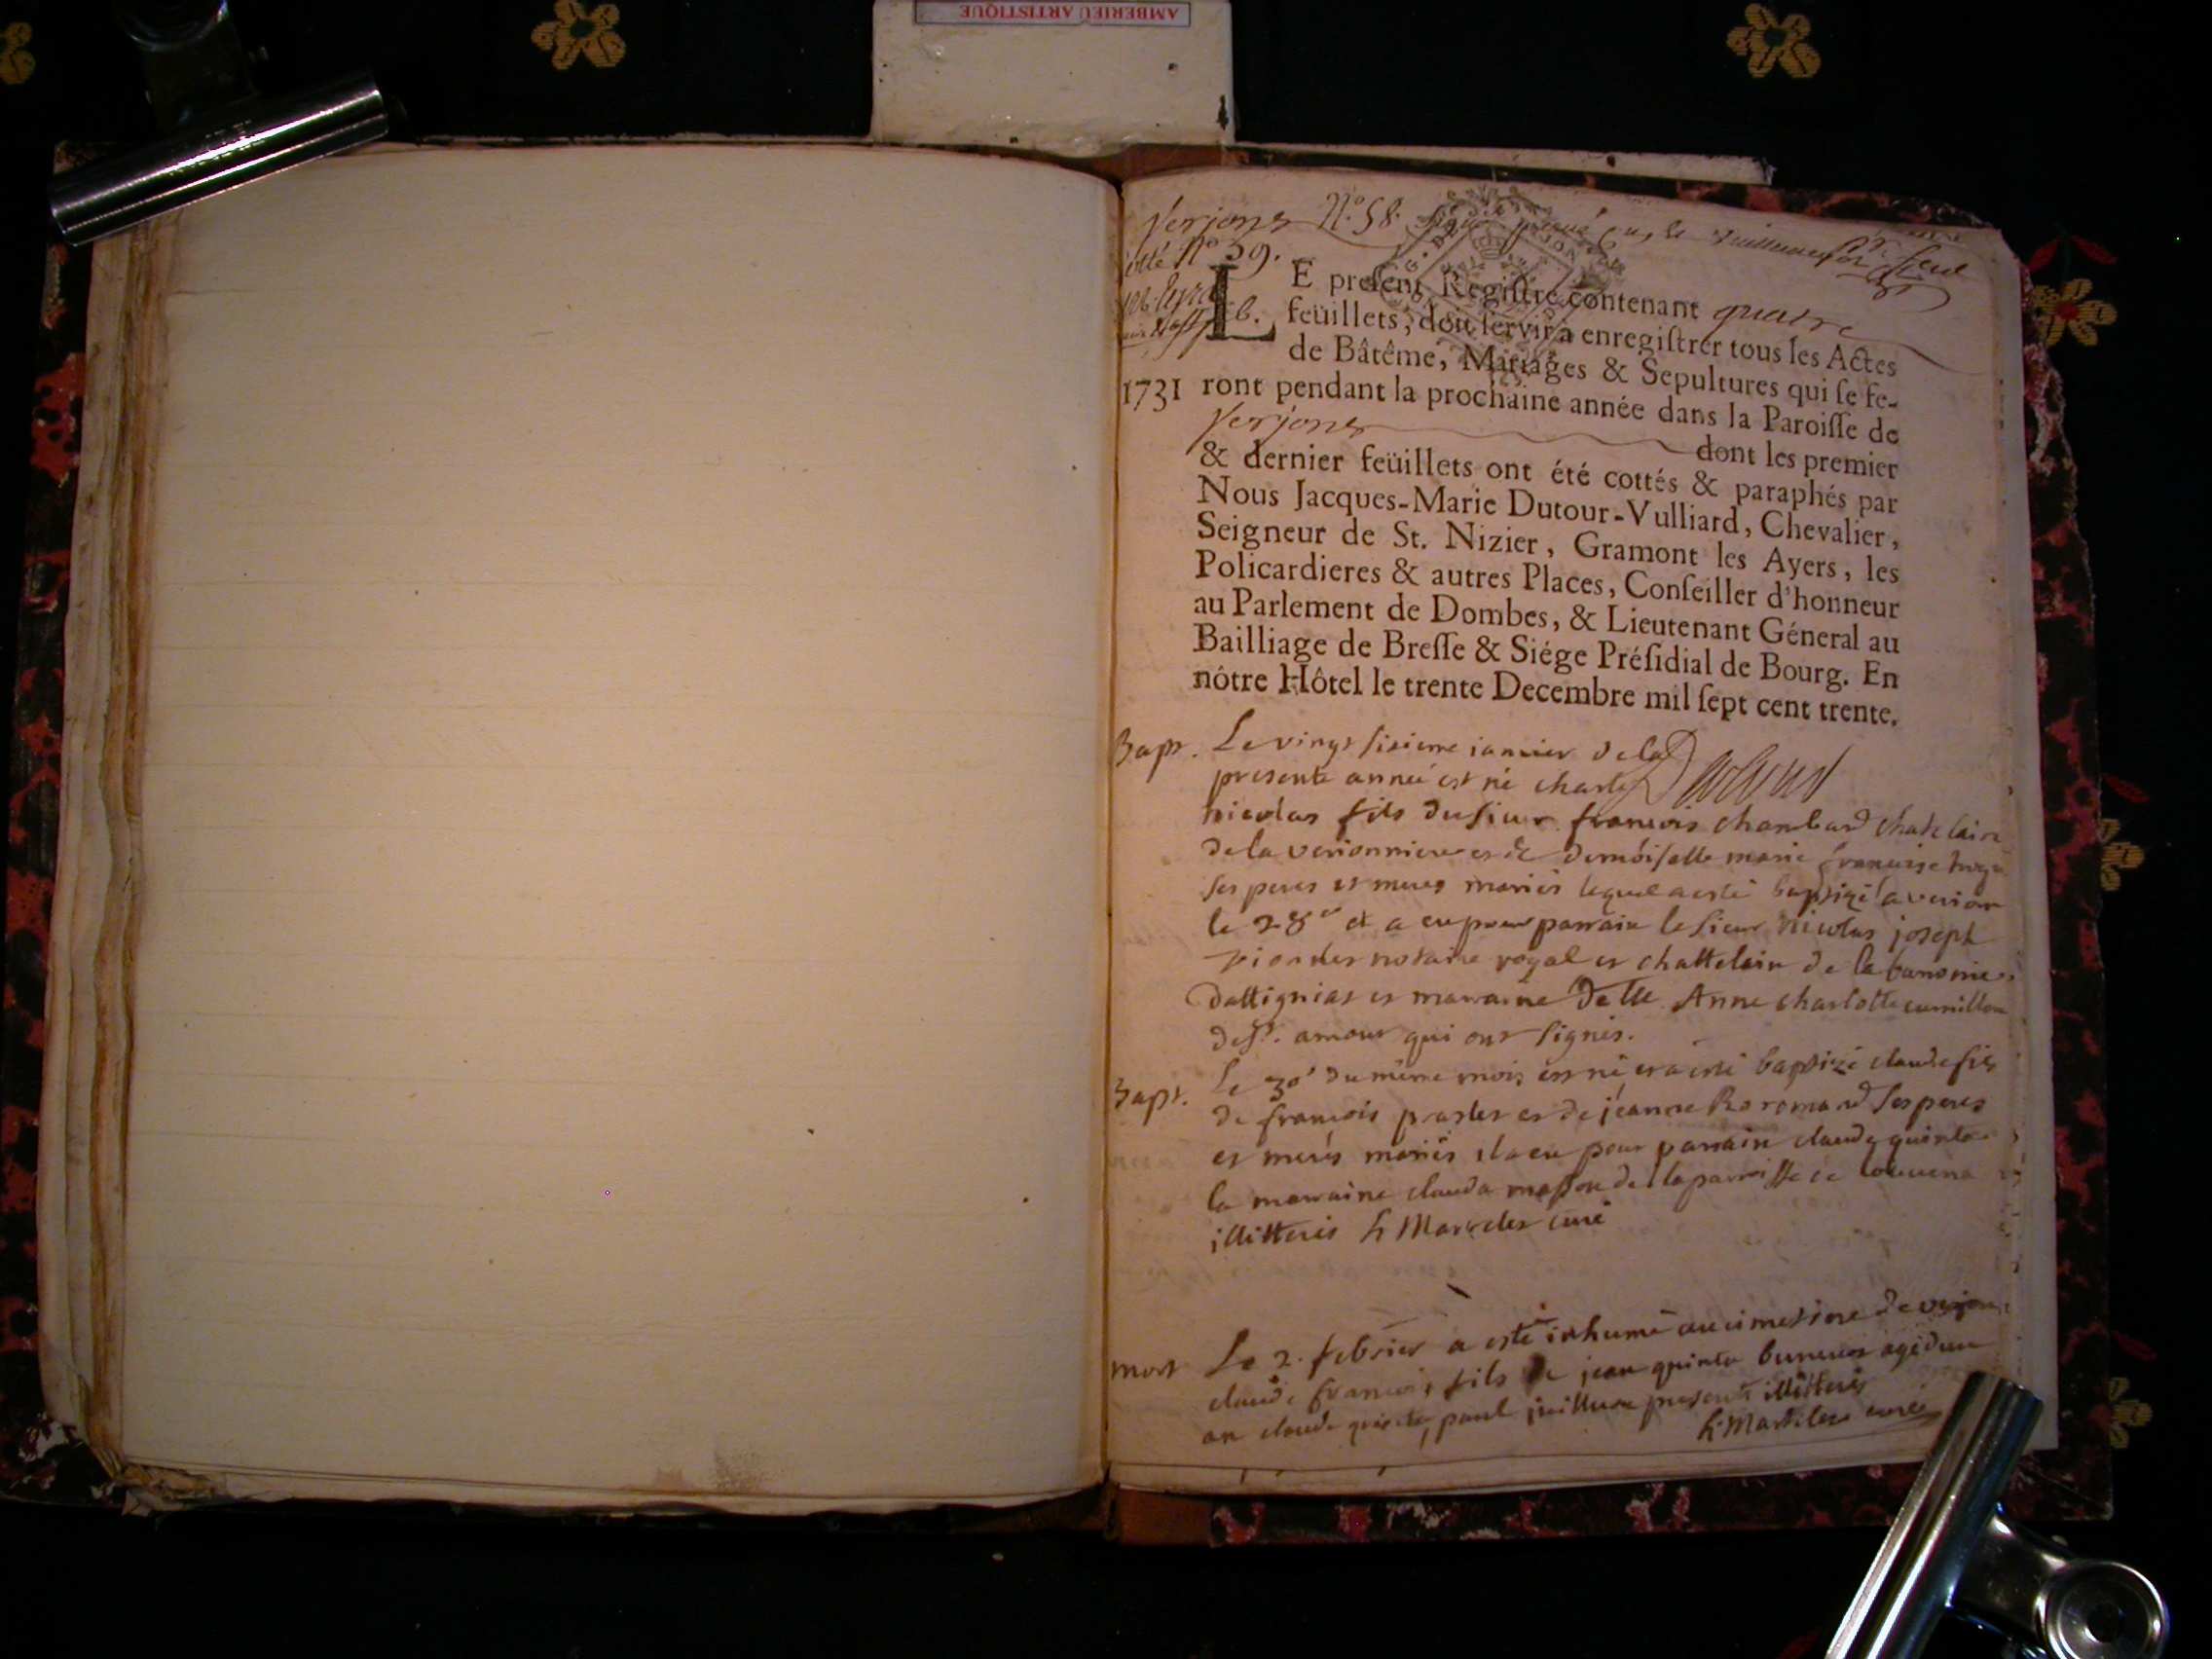 AMBERIEU ARTISTIQUE
Verjons N.º 58.
Cotté Nº 59.
LE preſent Regiſtre contenant quatre
feüillets, doit ſervir a enregiſtrer tous les Actes
de Bâtême, Mariages & Sepultures qui ſe fe-
1731 ront pendant la prochaine année dans la Paroiſſe de
Verjons dont les premier
& dernier feüillets ont été cottés & paraphés par
Nous Jacques-Marie Dutour-Vulliard, Chevalier,
Seigneur de St. Nizier, Gramont les Ayers, les
Policardieres & autres Places, Conſeiller d'honneur
au Parlement de Dombes, & Lieutenant Géneral au
Bailliage de Breſſe & Siége Préſidial de Bourg. En
nôtre Hôtel le trente Decembre mil ſept cent trente.
Bapt. Le vingt sixieme ianuier de la
presente anneé est né charle
nicolas fils du sieur francois chambard chatelain
de la verionniere et de demoiselle marie francoise
ses peres et meres mariés lequel a esté baptizé a verion
le 28e et a eu pour parrain le sieur nicolas joseph
notaire royal et chattelain de la baronnie
dattignias et marraine Delle Anne charlotte
de St. amour qui ont signés.
Bapt. Le 30e du méme mois est né et a esté baptizé claude fils
de francois et de jeanne ses peres
et merés mariés il a eu pour parrain claude quinte
la marraine clauda masson de la parroisse de
illitterés
mort Le 2. febrier a esté inhumé au cimetiere de verjon
claude francois fils de jean quinte agé d'un
an claude quinte, paul presents illitterés
curé